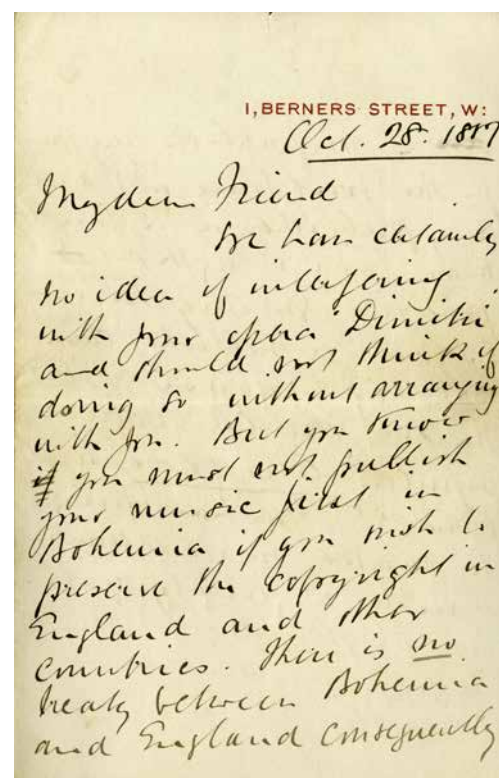 1, BERNERS STREET, W:
Oct. 28. 1887
My dear Friend
We have certainly
no idea of interfering
with your opera Dimitri
and should not think of
doing so without arranging
with you. But you know
if you must not publish
your music first in
Bohemia if you wish to
preserve the copyright in
England and other
countries. There is no
treaty between Bohemia
and England consequently